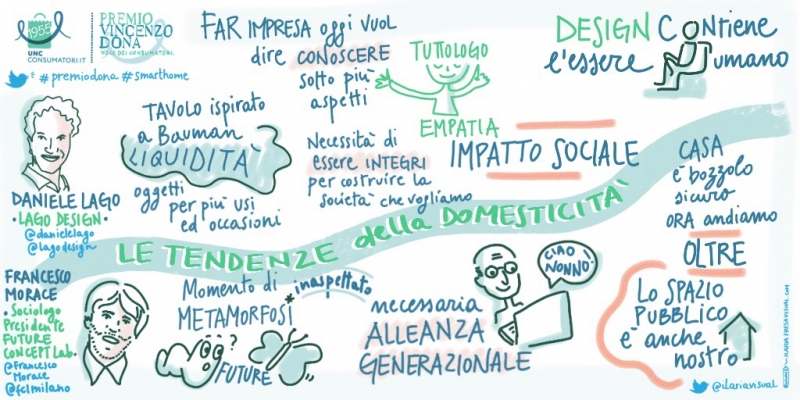 1955
UNC
CONSUMATORI.IT
PREMIO
VINCENZO
DONA
VOCE DEI CONSUMATORI
# premiodona # smarthome
FAR IMPRESA oggi VUOL
dire CONOSCERE
sotto più
aspetti
TUTTOLOGO
EMPATIA
DESIGN CONtiene
l'essere umano
TAVOLO ispirato
a Bauman
LIQUIDITÀ
oggetti
per più usi
ed occasioni
Necessità di
essere INTEGRI
per costruire la
Società che vogliamo
IMPATTO SOCIALE
CASA
è bozzolo
sicuro
ORA andiamo
OLTRE
DANIELE LAGO
• LAGO DESIGN •
@danielelago
@lagodesign
LE TENDENZE della DOMESTICITA'
FRANCESCO
MORACE
• Sociologo
Presidente
FUTURE
CONCEPT Lab •
@Francesco
Morace
@fclmilano
Momento di inaspettato
METAMORFOSI *
?
FUTURE
necessaria
ALLEANZA
GENERAZIONALE
CIAO
NONNO!
Lo SPAZIO
PUBBLICO
è anche
nostro
@ilariavisual